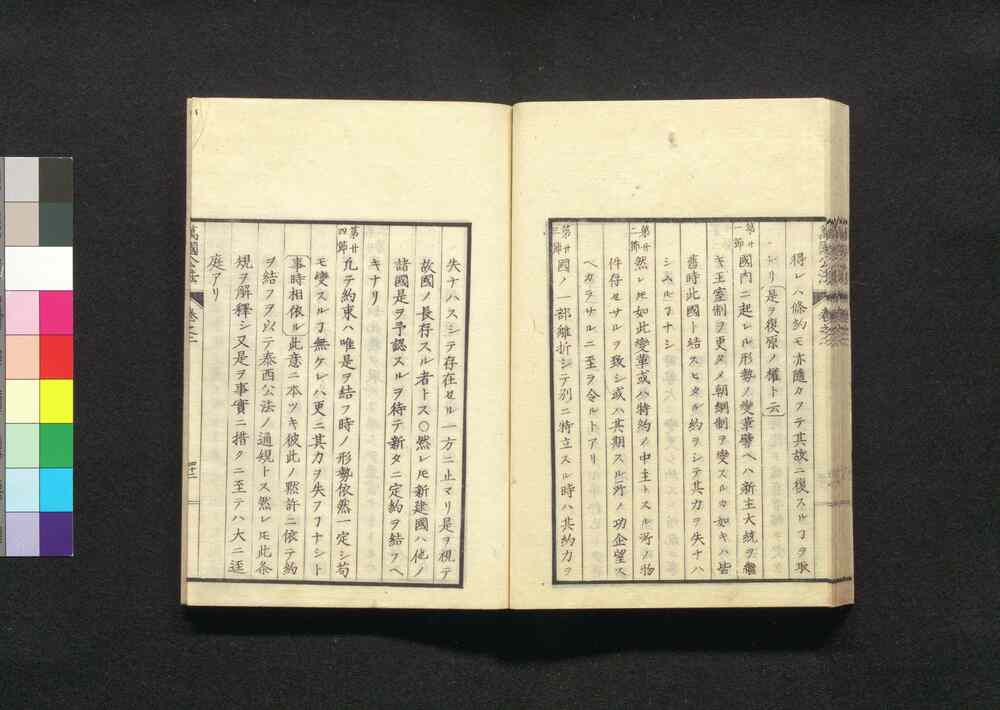 得レハ條約モ亦隨カフテ其故ニ復スルヿヲ取
ヘリ是ヲ復原ノ權ト云
第廿一節 國内ニ起レル形勢ノ變革譬ヘハ新主大統ヲ繼
キ王室制ヲ更タメ朝綱制ヲ變スルカ如キハ皆
舊時此國ト結スヒタル約ヲシテ其力ヲ失ナハ
シムルヿナシ
第廿二節 然レ𪜈如此變革或ハ特約ノ中主トスル所ノ物
件存セサルヲ致シ或ハ其期スル所ノ功企望ス
ヘカラサルニ至ラ令ルトアリ
第廿三節 國ノ一部離折シテ別ニ特立スル時ハ其約力ヲ
失ナハスシテ存在セル一方ニ止マリ是ヲ視テ
故國ノ長存スル者トス○然レ𪜈新建國ハ他ノ
諸國是ヲ予認スルヲ待テ新タニ定約ヲ結フヘ
キナリ
第廿四節 凡テ約束ハ唯是ヲ結フ時ノ形勢依然一定シ苟
モ變スルヿ無ケレハ更ニ其力ヲ失フヿナシト
事時相依ル此意ニ本ツキ彼此ノ黙許ニ依テ約
ヲ結フヲ以テ泰西公法ノ通規トス然レ𪜈此条
規ヲ解釋シ又是ヲ事實ニ措クニ至テハ大ニ逕
庭アリ
萬國公法
卷之二